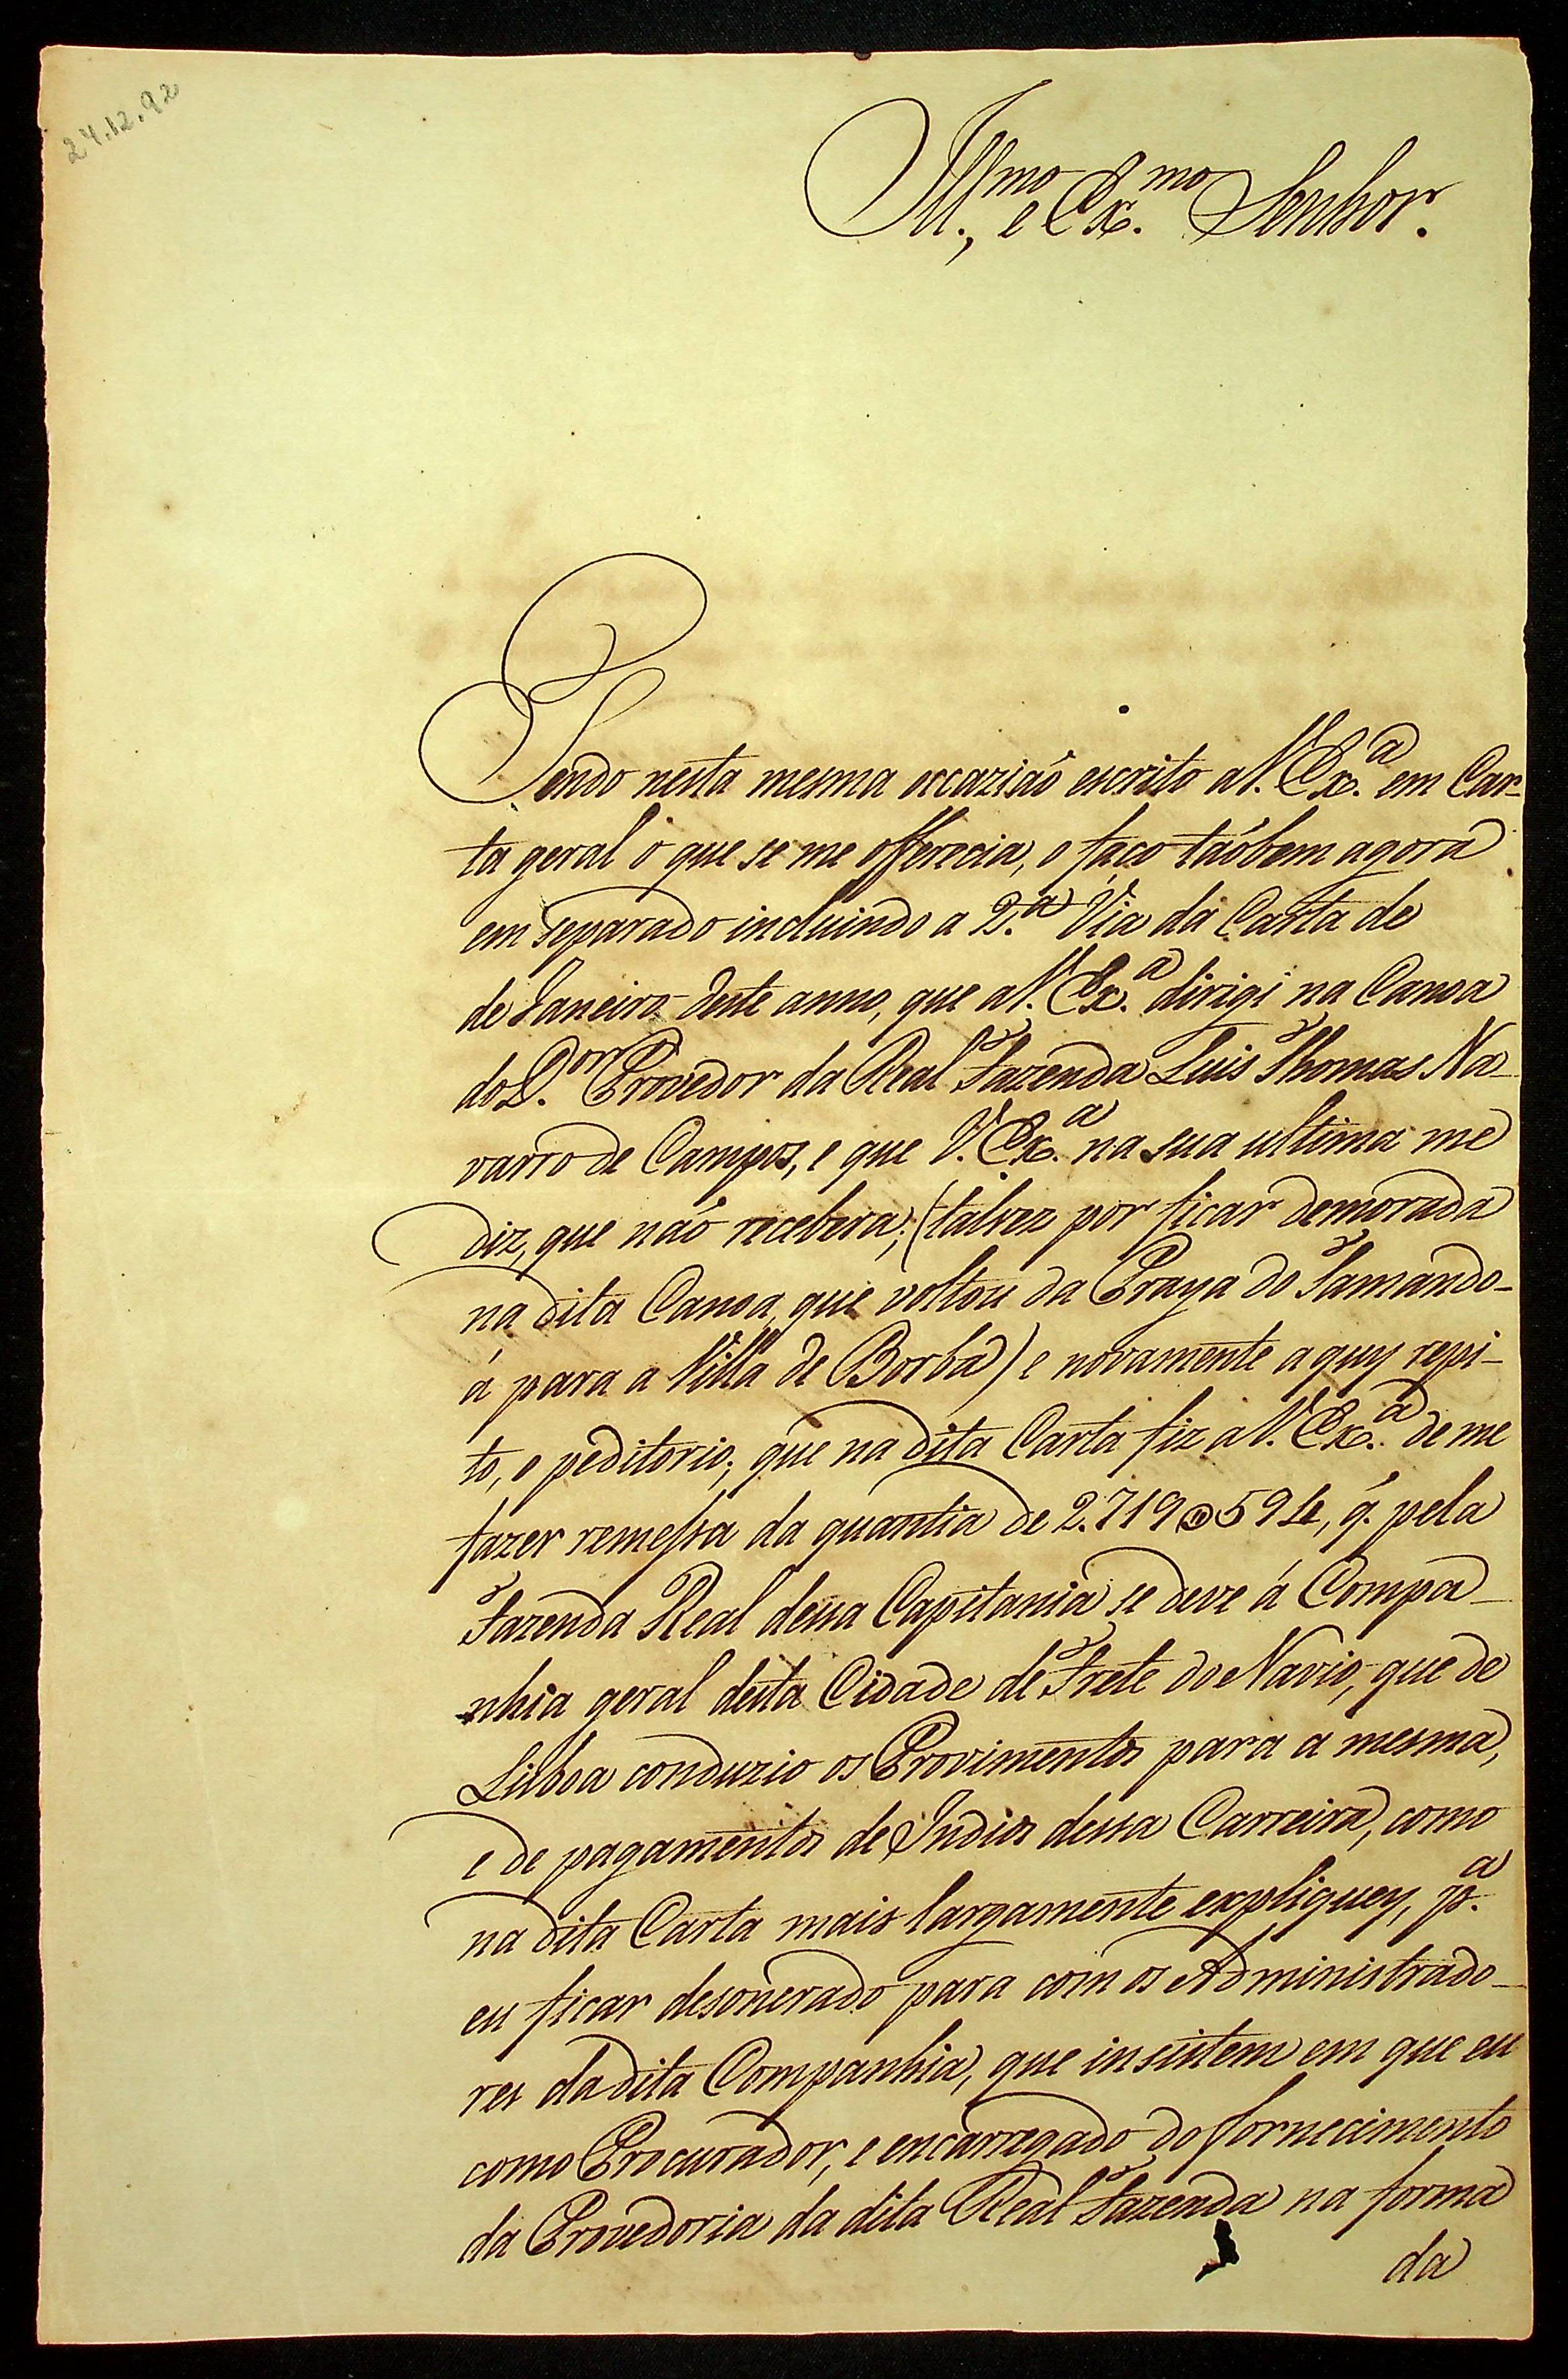 24.12.92
Ill.mo, e Ex.mo Senhor.
Tendo nesta mesma occaziaõ escrito a V. Ex.a em Car-
ta geral o que se me offerecia, o faço taõbem agora
em separado incluindo a 2.a Via da Carta de
de Janeiro deste anno, que a V. Ex.a dirigi na Canoa
do D.or Provedor da Real Fazenda Luis Thomas Na-
varro de Campos, e que V. Ex.a na sua ultima me
diz, que naõ recebera; (talvez por ficar demorada
na dita Canoa, que voltou da Praya do Tamando-
á para a Villa de Borba) e novamente aquy repi-
to, o peditorio, que na dita Carta fiz a V. Ex.a de me
fazer remessa da quantia de 2.719 594, q. pela
Fazenda Real dessa Capitania se deve á Compa-
nhia geral desta Cidade de Frete do Navio, que de
Lisboa conduzio os Provimentos para a mesma,
e de pagamentos de Indios dessa Carreira, como
na dita Carta mais largamente expliquey, p.a
eu ficar desonerado para com os Administrado-
res da dita Companhia, que insistem em que eu
como Procurador, e encarregado do fornecimento
da Provedoria da dita Real Fazenda na forma
da